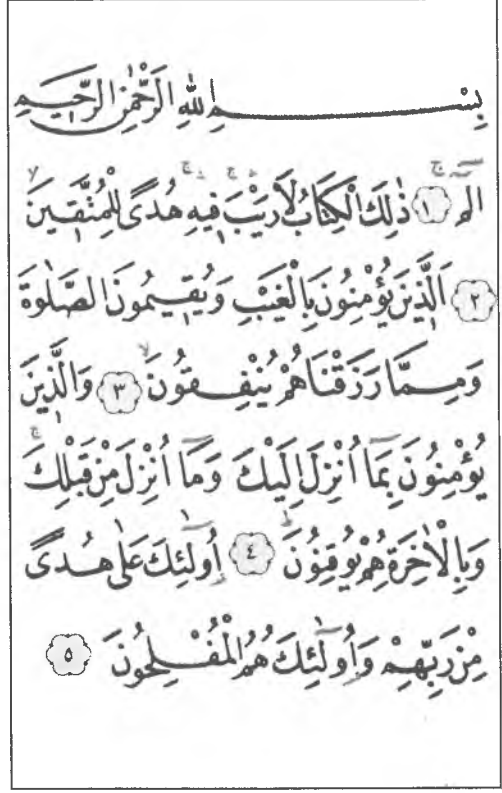 بِسْمِ اللهِ الرَّحْمٰنِ الرَّحِيمِ
الٓمٓ ۚ ﴿١﴾ ذٰلِكَ الْكِتَابُ لَا رَيْبَ ۚ ۛ فِيهِ ۚ ۛ هُدًى لِلْمُتَّقِينَ ۙ
﴿٢﴾ اَلَّذِينَ يُؤْمِنُونَ بِالْغَيْبِ وَيُقِيمُونَ الصَّلٰوةَ
وَمِمَّا رَزَقْنَاهُمْ يُنْفِقُونَ ۙ ﴿٣﴾ وَالَّذِينَ
يُؤْمِنُونَ بِمَٓا اُنْزِلَ اِلَيْكَ وَمَٓا اُنْزِلَ مِنْ قَبْلِكَ ۚ
وَبِالْاٰخِرَةِ هُمْ يُوقِنُونَ ۜ ﴿٤﴾ اُولٰٓئِكَ عَلٰى هُدًى
مِنْ رَبِّهِمْ وَاُولٰٓئِكَ هُمُ الْمُفْلِحُونَ ﴿٥﴾